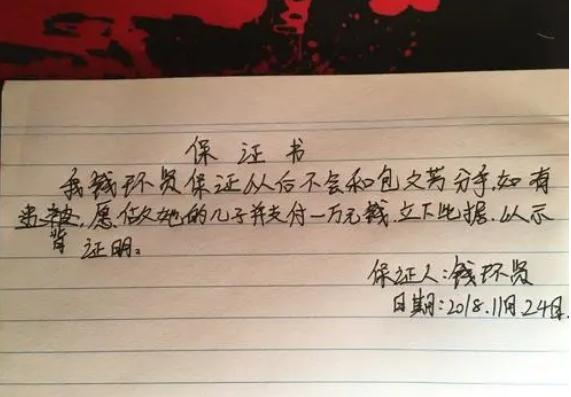 保证书
我钱环贤保证以后不会和包文芳分手,如有
违背,愿做她的儿子并支付一万元钱,立下此据,以示
证明。
保证人:钱环贤
日期:2018.11月24日.